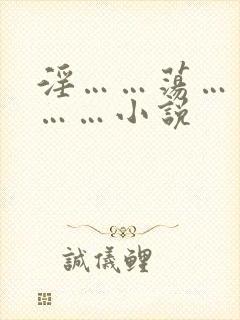 淫……蕩…
……小說
誠儀鯉